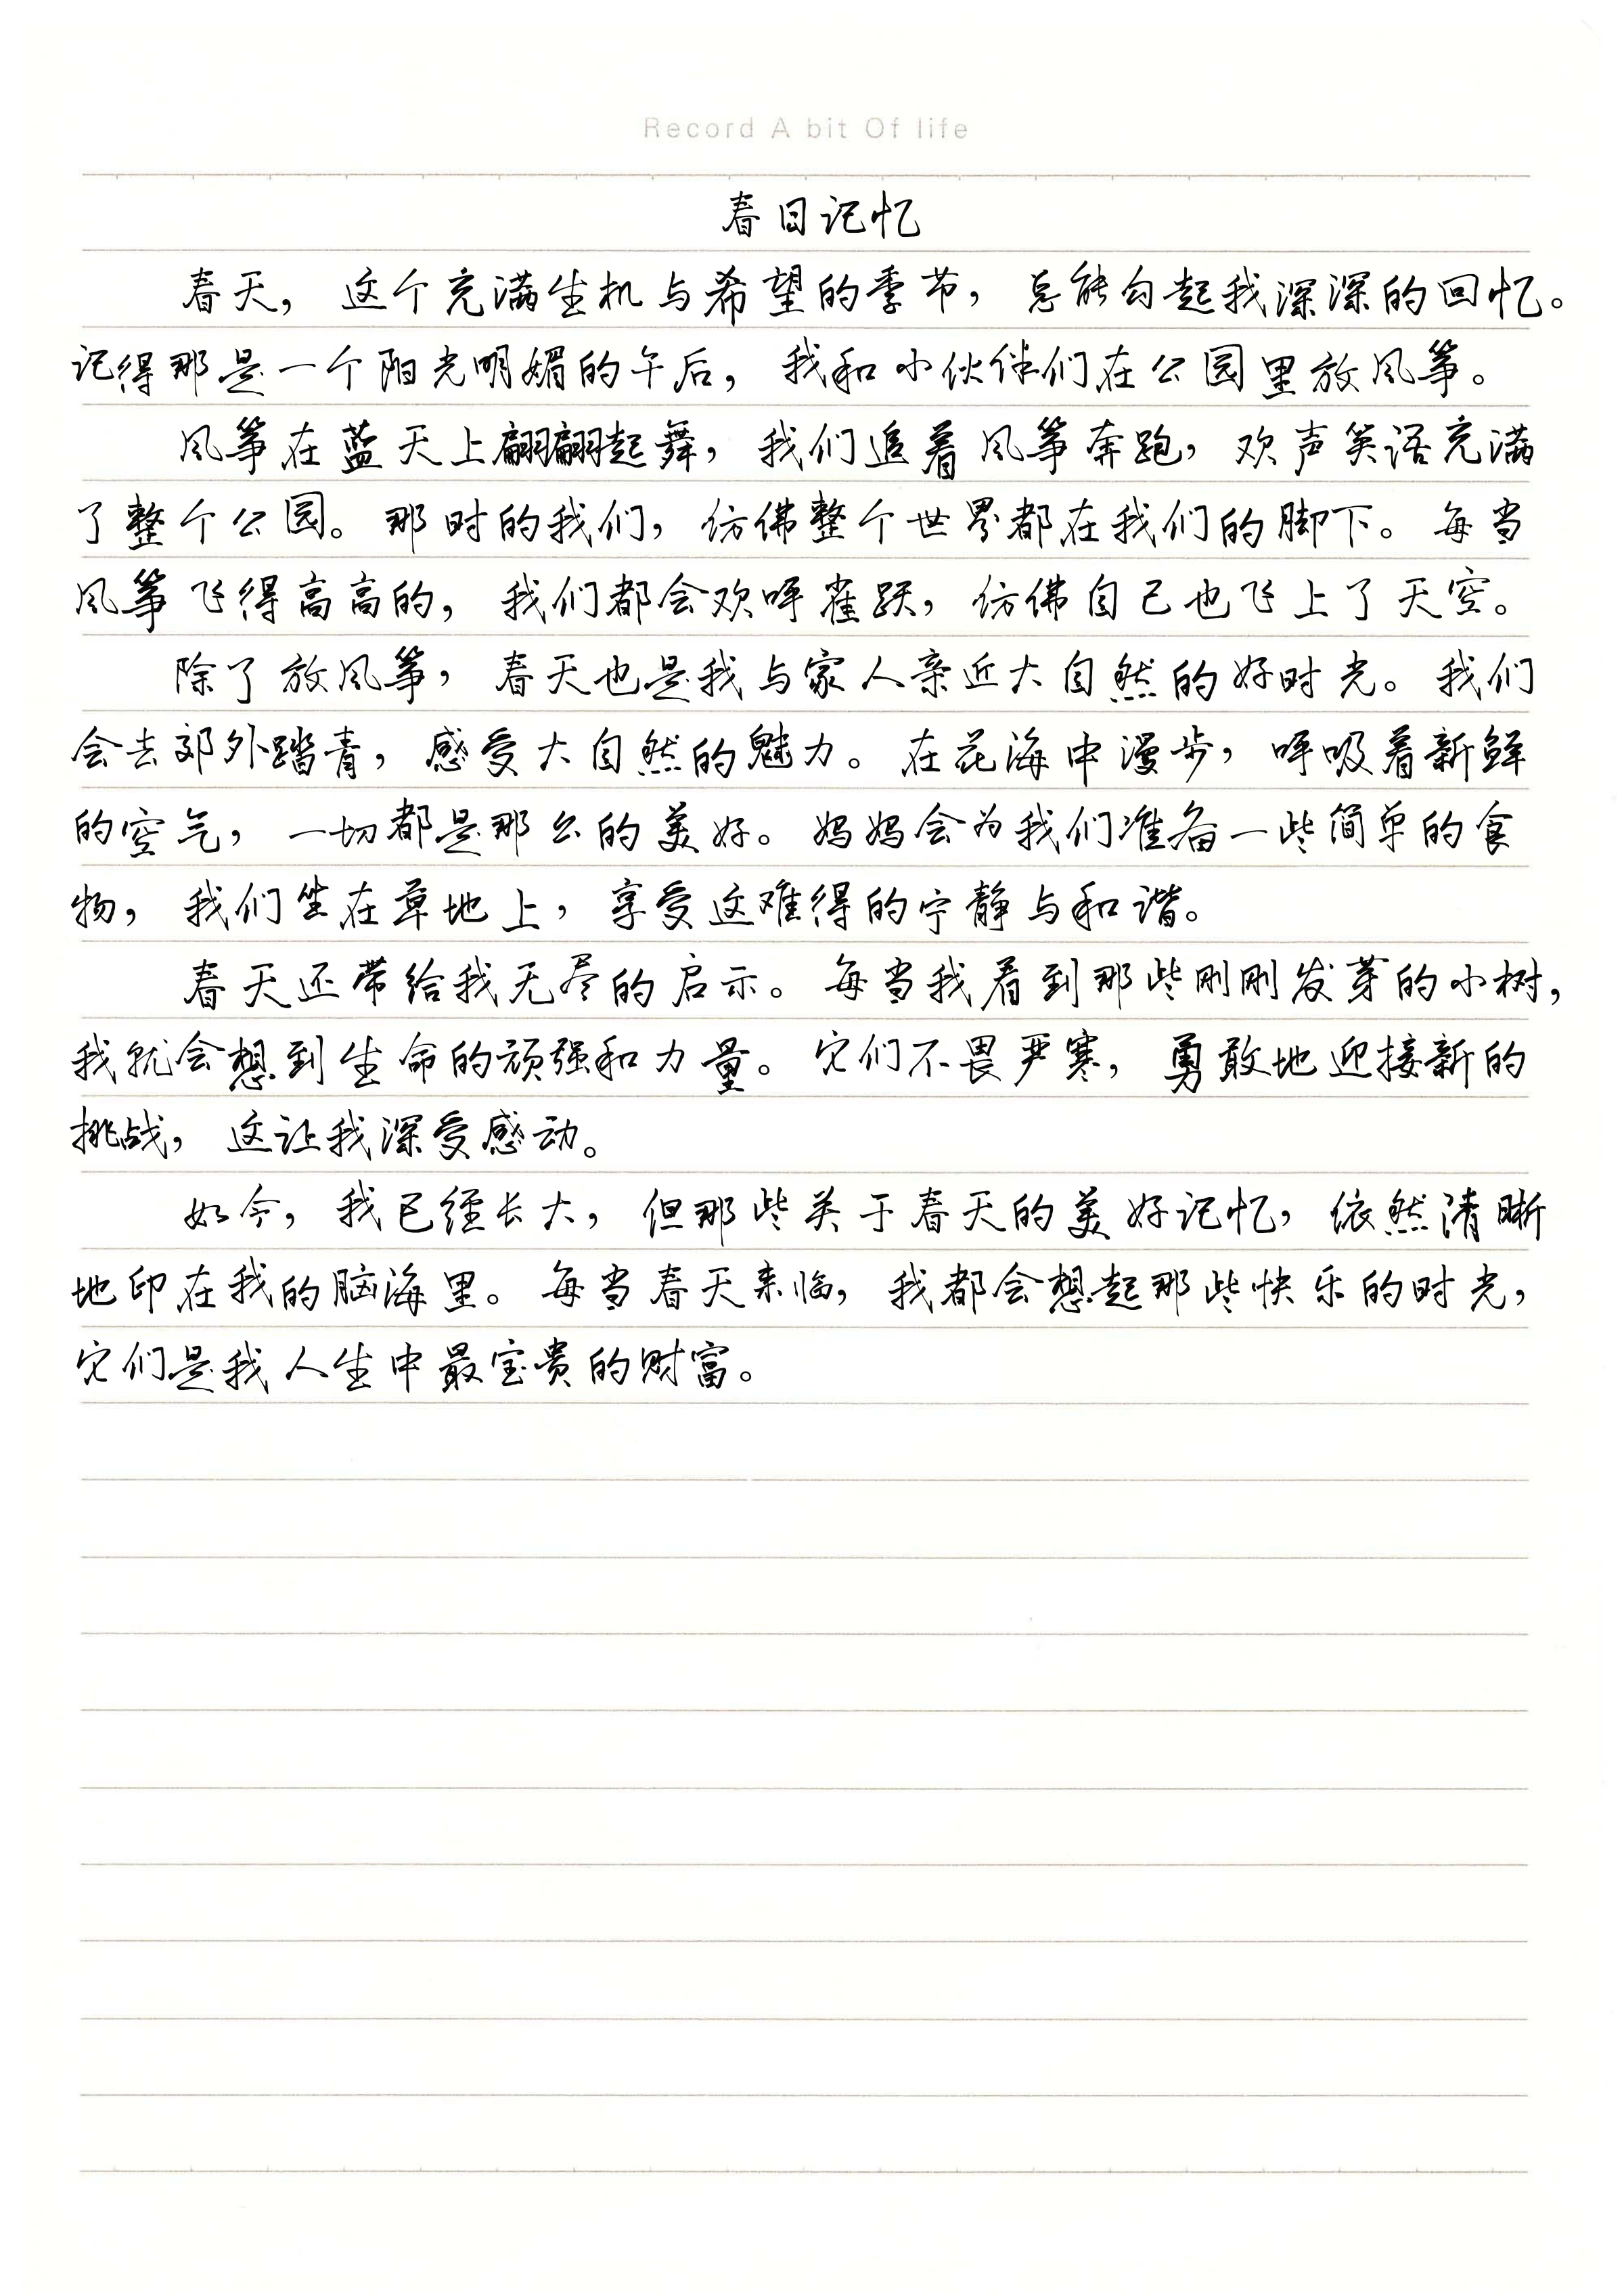 Record A bit Of life
春日记忆
春天，这个充满生机与希望的季节，总能勾起我深深的回忆。
记得那是一个阳光明媚的午后，我和小伙伴们在公园里放风筝。
风筝在蓝天上翩翩起舞，我们追着风筝奔跑，欢声笑语充满
了整个公园。那时的我们，仿佛整个世界都在我们的脚下。每当
风筝飞得高高的，我们都会欢呼雀跃，仿佛自己也飞上了天空。
除了放风筝，春天也是我与家人亲近大自然的好时光。我们
会去郊外踏青，感受大自然的魅力。在花海中漫步，呼吸着新鲜
的空气，一切都是那么的美好。妈妈会为我们准备一些简单的食
物，我们坐在草地上，享受这难得的宁静与和谐。
春天还带给我无尽的启示。每当我看到那些刚刚发芽的小树，
我就会想到生命的顽强和力量。它们不畏严寒，勇敢地迎接新的
挑战，这让我深受感动。
如今，我已经长大，但那些关于春天的美好记忆，依然清晰
地印在我的脑海里。每当春天来临，我都会想起那些快乐的时光，
它们是我人生中最宝贵的财富。